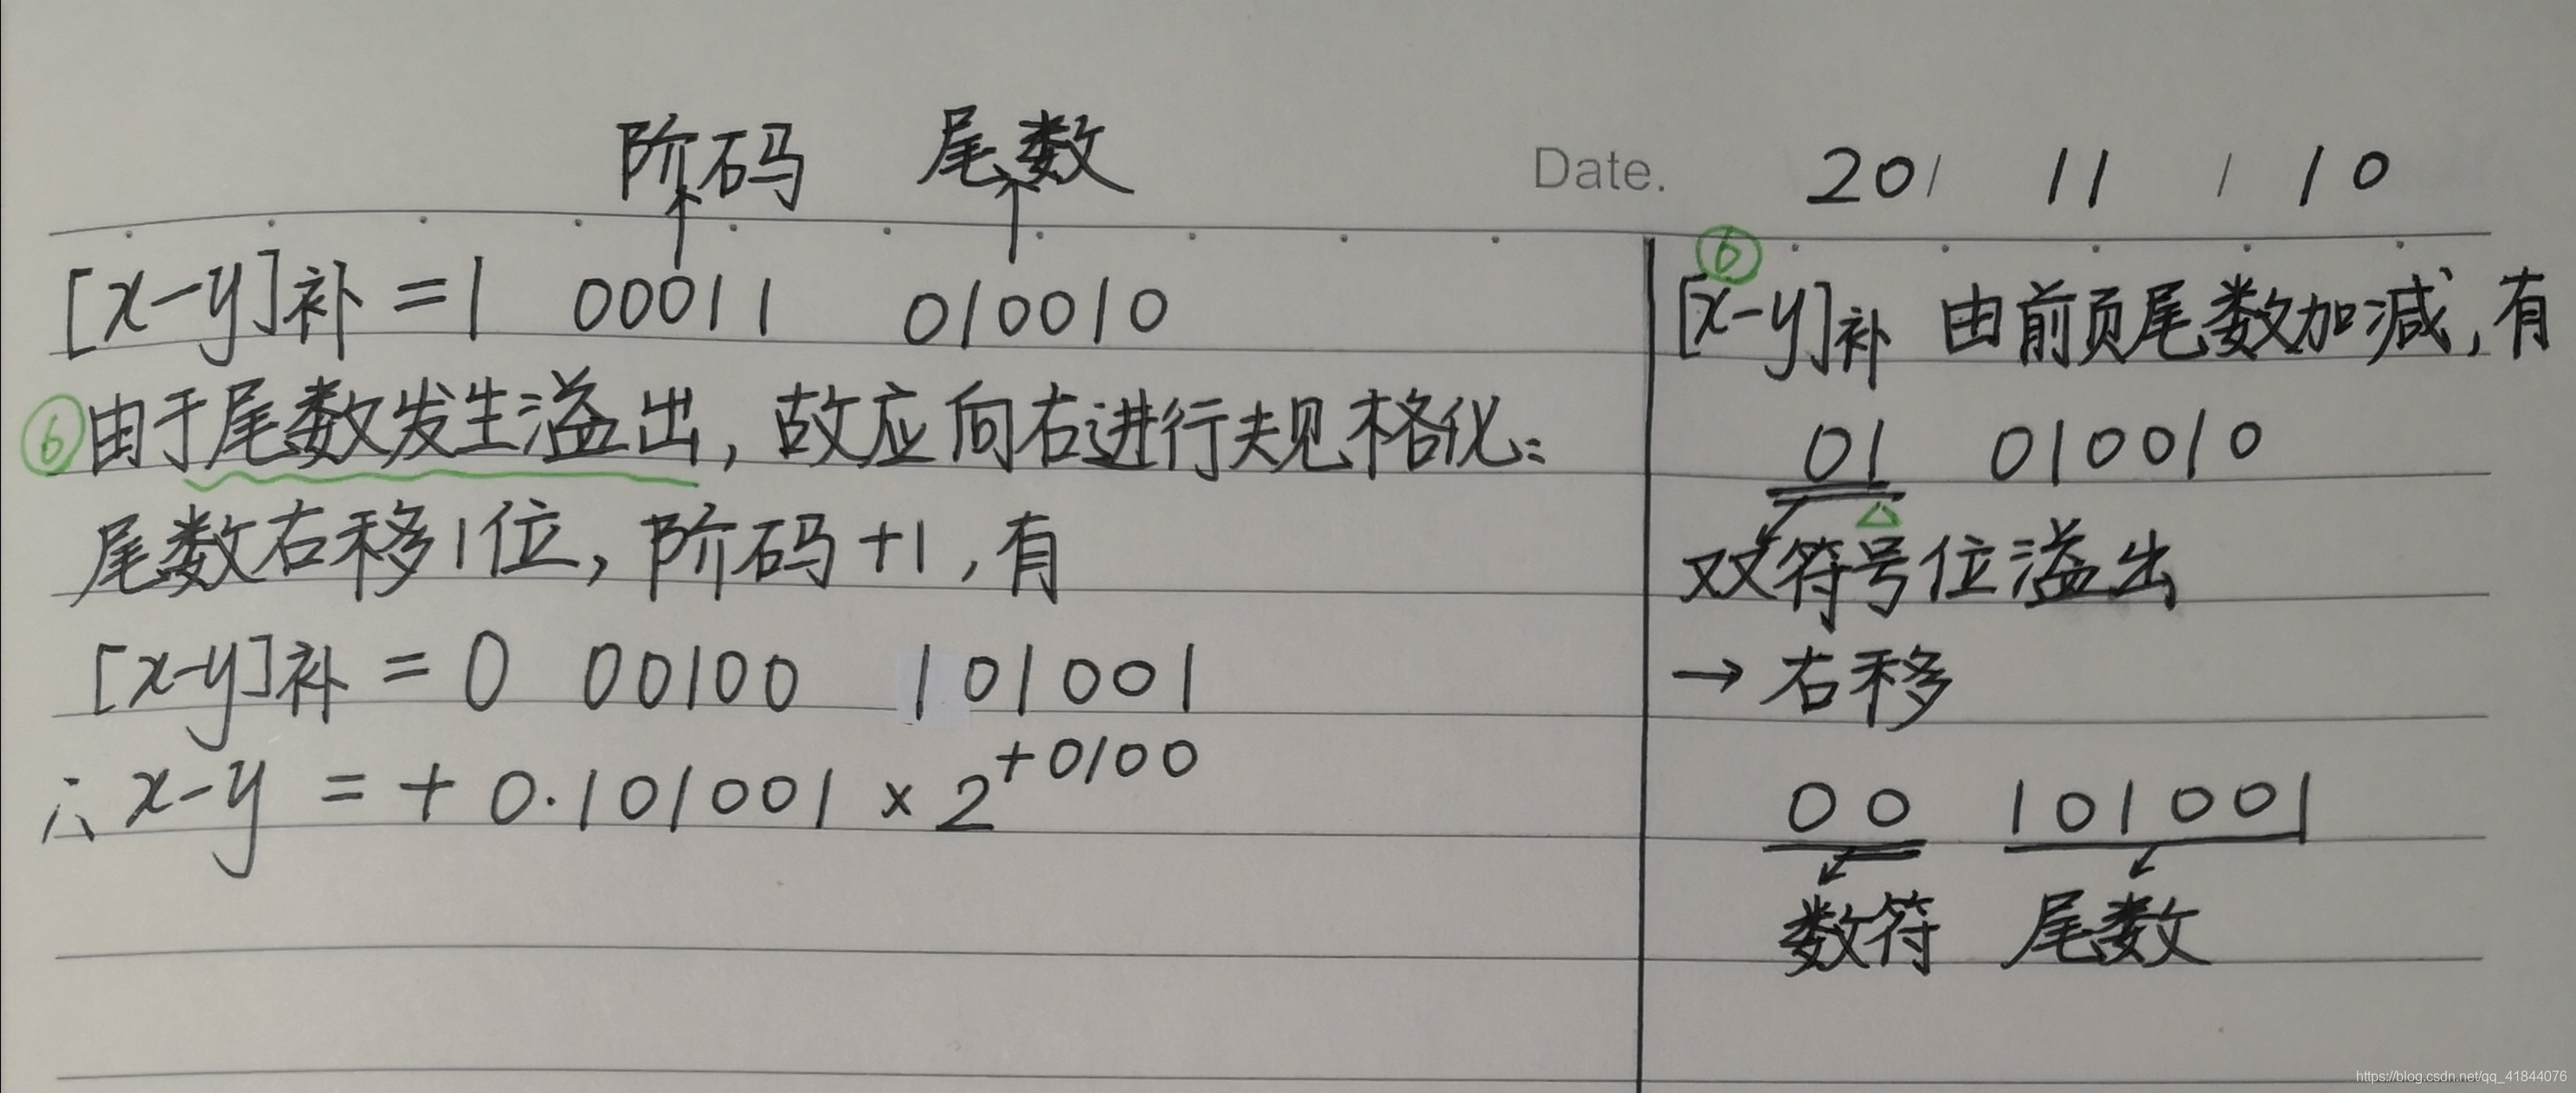 阶码 尾数
Date. 20/ 11 / 10
[x-y]补 = 1 00011 010010
⑥由于尾数发生溢出,故应向右进行规格化:
尾数右移1位,阶码+1,有
[x-y]补 = 0 00100 101001
∴ x-y = + 0.101001 × 2^+0100
⑥
[x-y]补 由前页尾数加减,有
01 010010
双符号位溢出
→ 右移
00 101001
数符 尾数
https://blog.csdn.net/qq_41844076